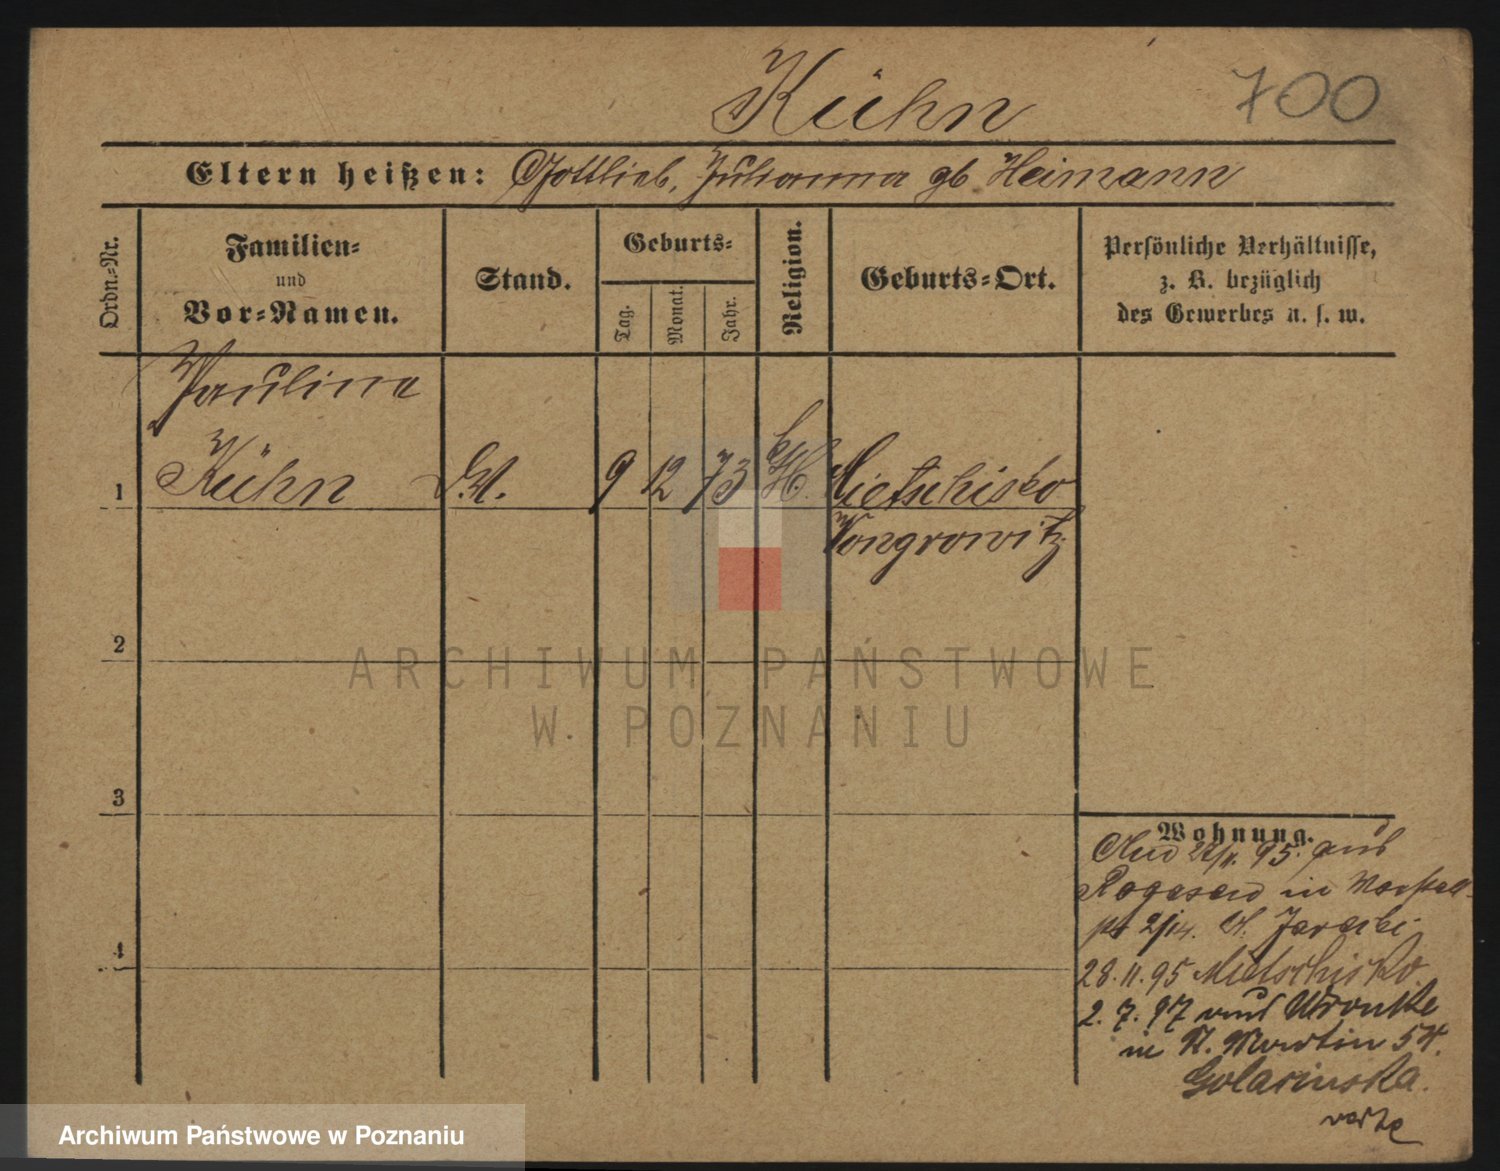 Kühn
700
Eltern heißen: Gottlieb, Julianna gb Heimann
Ordn.-Nr.
Familien-
und
Vor-Namen.
Stand.
Geburts-
Tag.
Monat.
Jahr.
Religion.
Geburts-Ort.
Persönliche Verhältnisse,
z. B. bezüglich
des Gewerbes u. s. w.
Paulina
1 Kühn 9 12 73 Mietschisko
Wongrowitz
2
3
4
Wohnung.
95. aus
Rogasen in
28.11.95 Mietschisko.
2. 7. 97 aus Wronke
in St. Martin 54.
Golasinska.
verte
ARCHIWUM PAŃSTWOWE
W POZNANIU
Archiwum Państwowe w Poznaniu